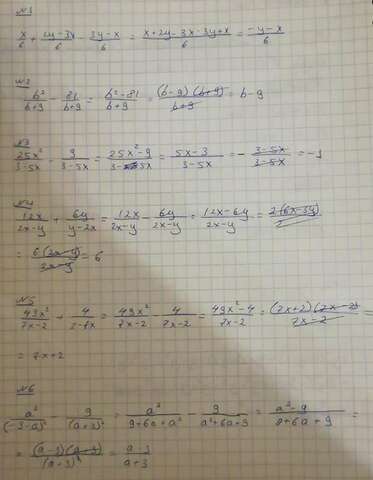 №1
x/6 + (2y-3x)/6 - (3y-x)/6 = (x+2y-3x-3y+x)/6 = (-y-x)/6
№2
b²/(b+9) - 81/(b+9) = (b²-81)/(b+9) = (b-9)(b+9)/(b+9) = b-9
№3
25x²/(3-5x) - 9/(3-5x) = (25x²-9)/(3-5x) = (5x-3)/(3-5x) = - (3-5x)/(3-5x) = -1
№4
12x/(2x-y) + 6y/(y-2x) = 12x/(2x-y) - 6y/(2x-y) = (12x-6y)/(2x-y) = 2(6x-3y)
= 6(2x-y)/(2x-y) = 6
№5
49x²/(7x-2) + 4/(2-7x) = 49x²/(7x-2) - 4/(7x-2) = (49x²-4)/(7x-2) = (7x+2)(7x-2)/(7x-2) =
= 7x+2
№6
a²/(-3-a)² - 9/(a+3)² = a²/(9+6a+a²) - 9/(a²+6a+9) = (a²-9)/(a²+6a+9) =
= (a-3)(a+3)/(a+3)² = (a-3)/(a+3)